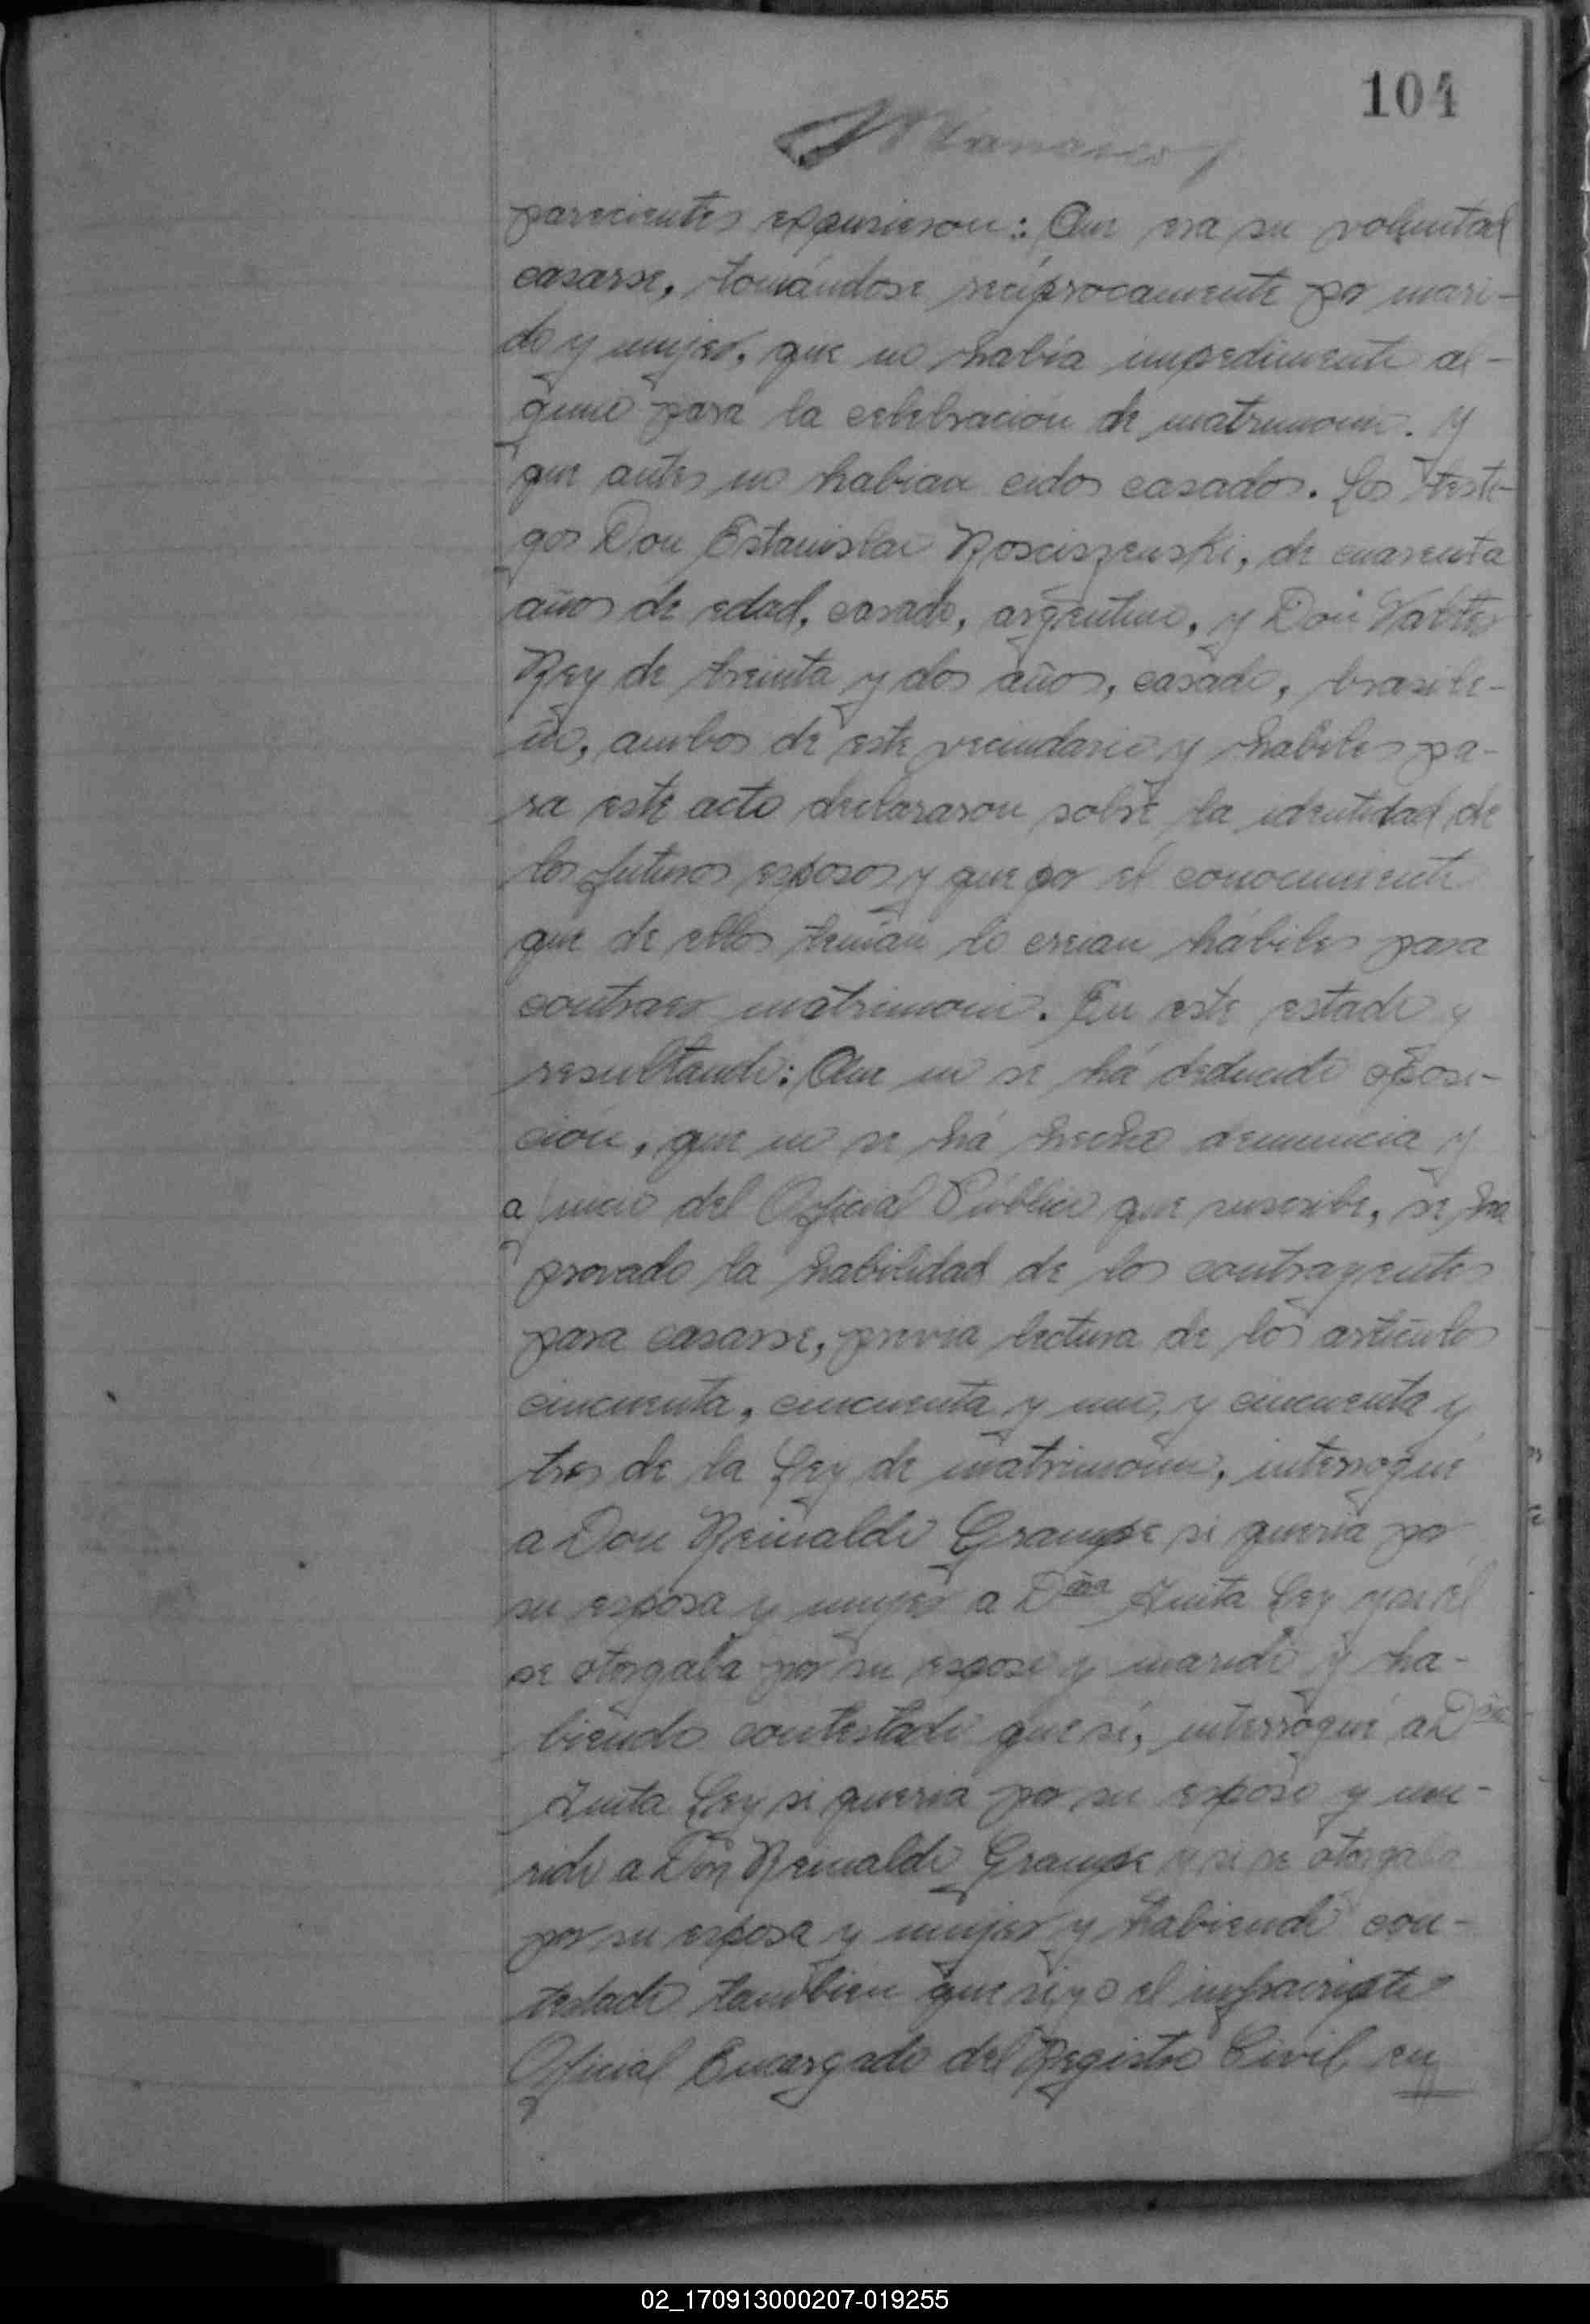 104
parecientes expusieron: Que era su voluntad
casarse, tomándose recíprocamente por mari-
do y mujer, que no había impedimento al-
guno para la celebración de matrimonio. Y
que antes no habian cidos casados. Los testi-
gos Don Estanislao Rosciszenski, de cuarenta
años de edad, casado, argentino, y Don Valter
Rey de treinta y dos años, casado, brasile-
ño, ambos de este vecindario y habiles pa-
ra este acto declararon sobre la identidad de
los futuros esposos y que por el conocimiento
que de ellos tenian lo creian hábiles para
contraer matrimonio. En este estado y
resultando: Que no se há deducido oposi-
ción, que no se há hecho denuncia y
a juicio del Oficial Público que suscribe, se há
provado la habilidad de los contrayentes
para casarse, previa lectura de los artículos
cincuenta, cincuenta y uno, y cincuenta y
tres de la Ley de matrimonio, interrogué
a Don Reinaldo Grampe si queria por
su esposa y mujer a Dña Anita Ley y si el
se otorgaba por su esposo y marido y ha-
biendo contestado que sí, interrogué a Dña
Anita Ley si queria por su esposo y ma-
rido a Don Reinaldo Grampe y si se otorgaba
por su esposa y mujer y habiendo con-
testado tambien que si yo el infrascripto
Oficial Encargado del Registro Civil, en
02_170913000207-019255